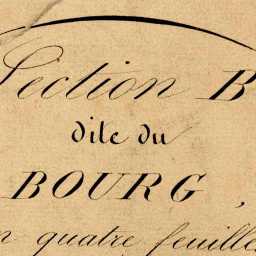 Section B
dite du
BOURG,
n quatre feuilles